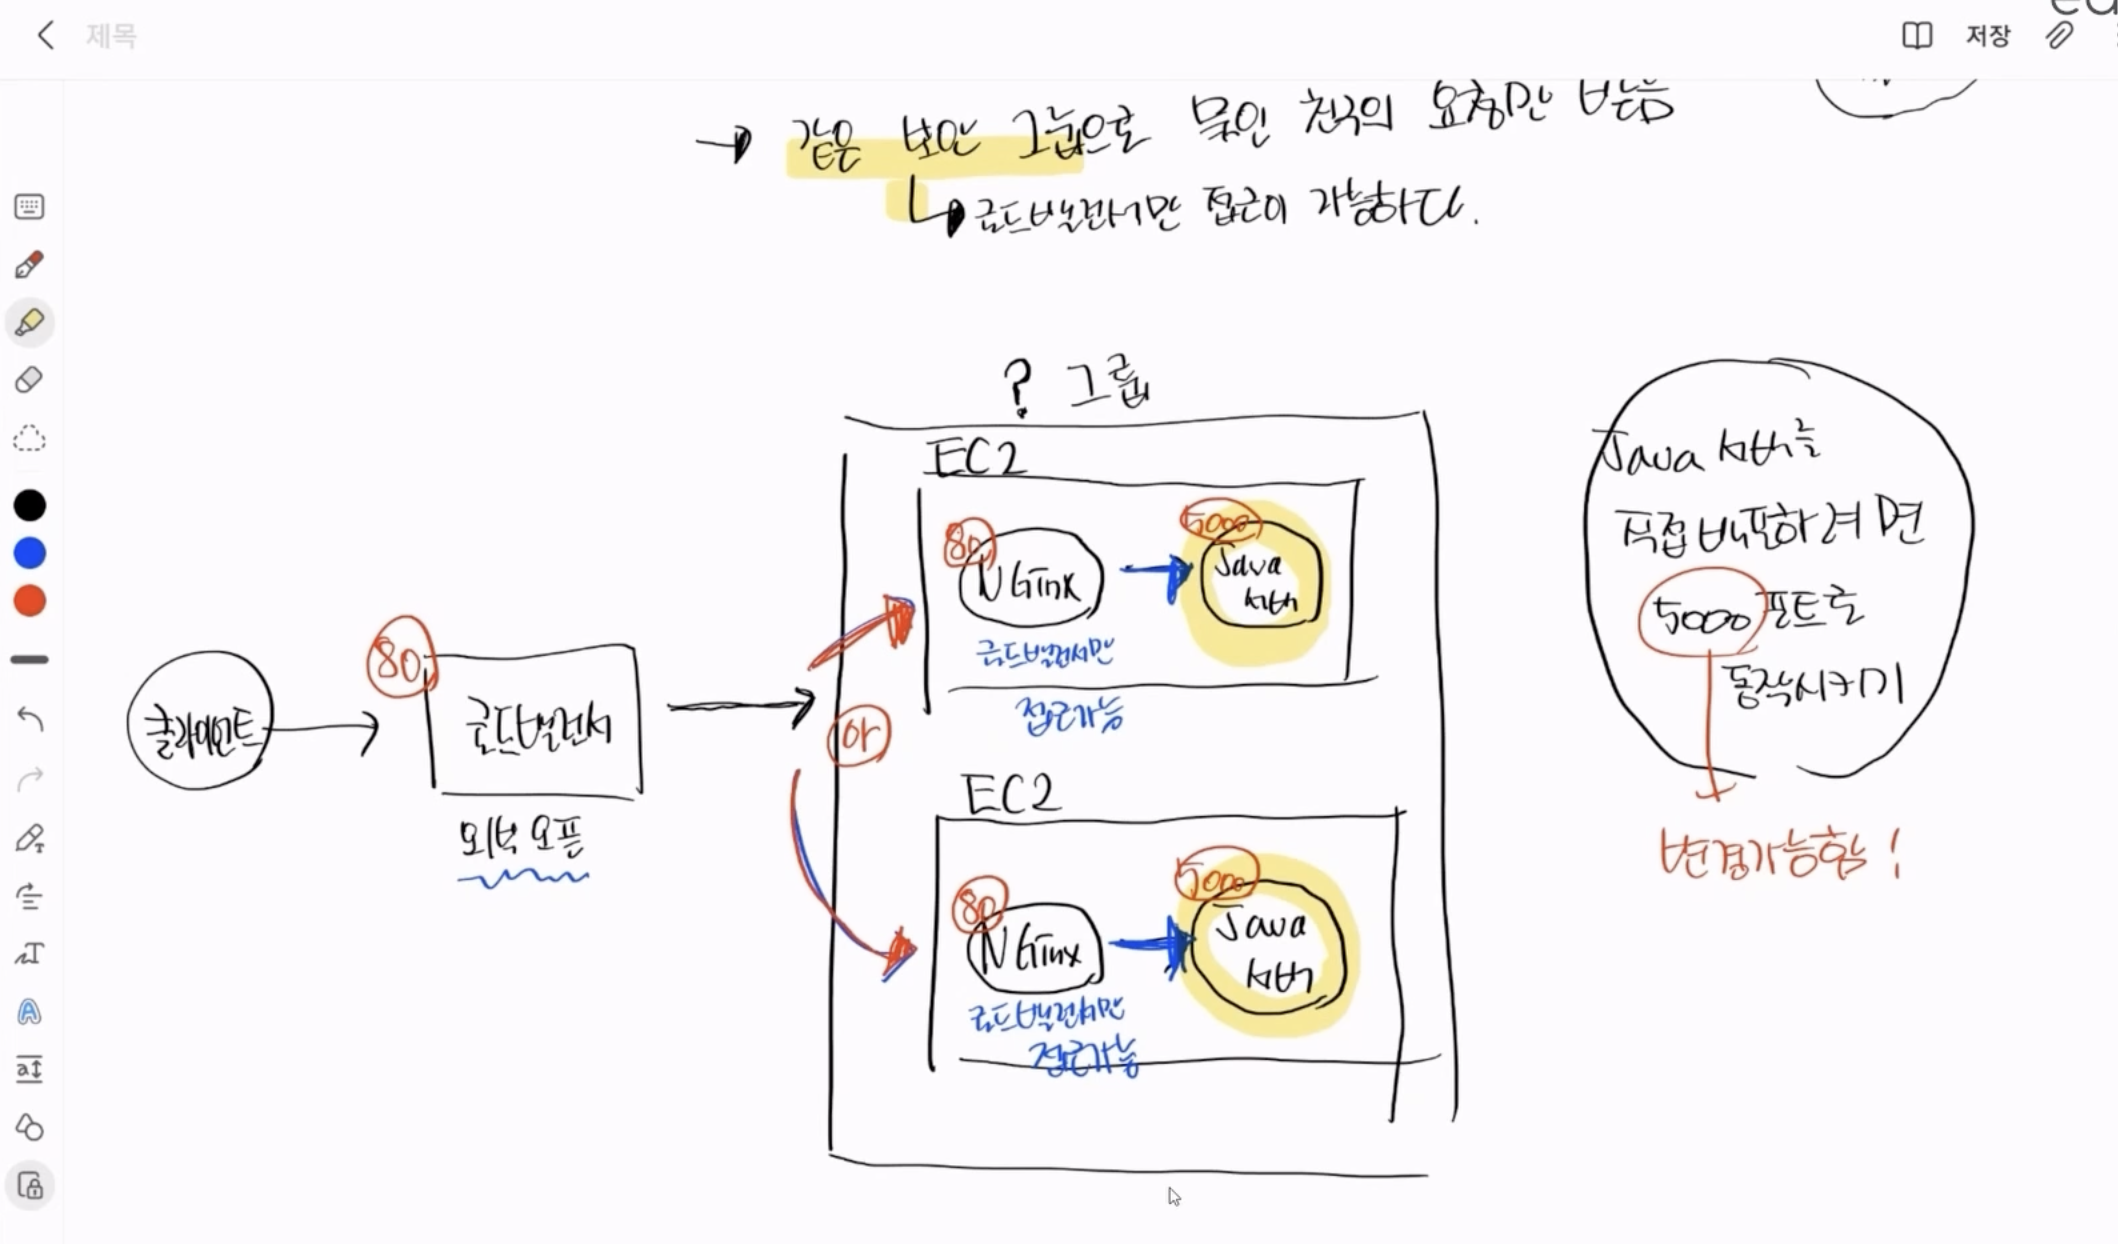 제목
저장
→ 같은 보안 그룹으로 묶인 친구의 요청만 받음
↳ 로드밸런서만 접근이 가능하다.
? 그룹
EC2
80
NGinx
5000
Java
서버
로드밸런서만
접근가능
클라이언트
80
로드밸런서
외부 오픈
or
EC2
80
NGinx
5000
Java
서버
로드밸런서만
접근가능
Java 서버를
직접 배포하려면
5000 포트로
동작시키기
변경가능함!